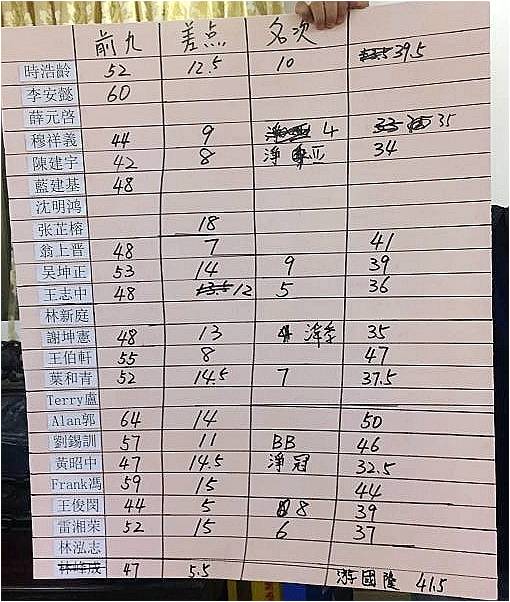 前九 差点 名次
時浩齡 52 12.5 10 39.5
李安懿 60
薛元啓
穆祥義 44 9 4 35
陳建宇 42 8 淨亞 34
藍建基 48
沈明鸿
张芷榕 18
翁上晋 48 7 41
吴坤正 53 14 9 39
王志中 48 12 5 36
林新庭
謝坤憲 48 13 淨季 35
王伯軒 55 8 47
葉和青 52 14.5 7 37.5
Terry盧
Alan郭 64 14 50
劉錫訓 57 11 BB 46
黃昭中 47 14.5 淨冠 32.5
Frank馮 59 15 44
王俊閔 44 5 8 39
雷湘荣 52 15 6 37
林泓志
林峰成 47 5.5 游國隆 41.5